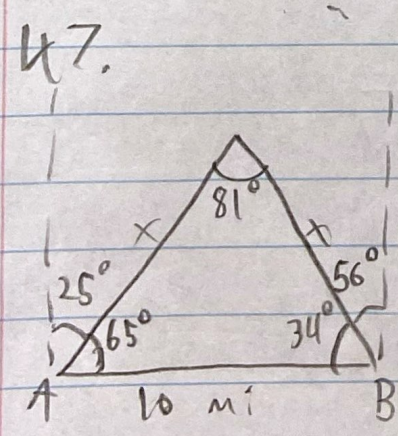 47.
81°
x
x
25°
56°
65°
34°
A
10 mi
B